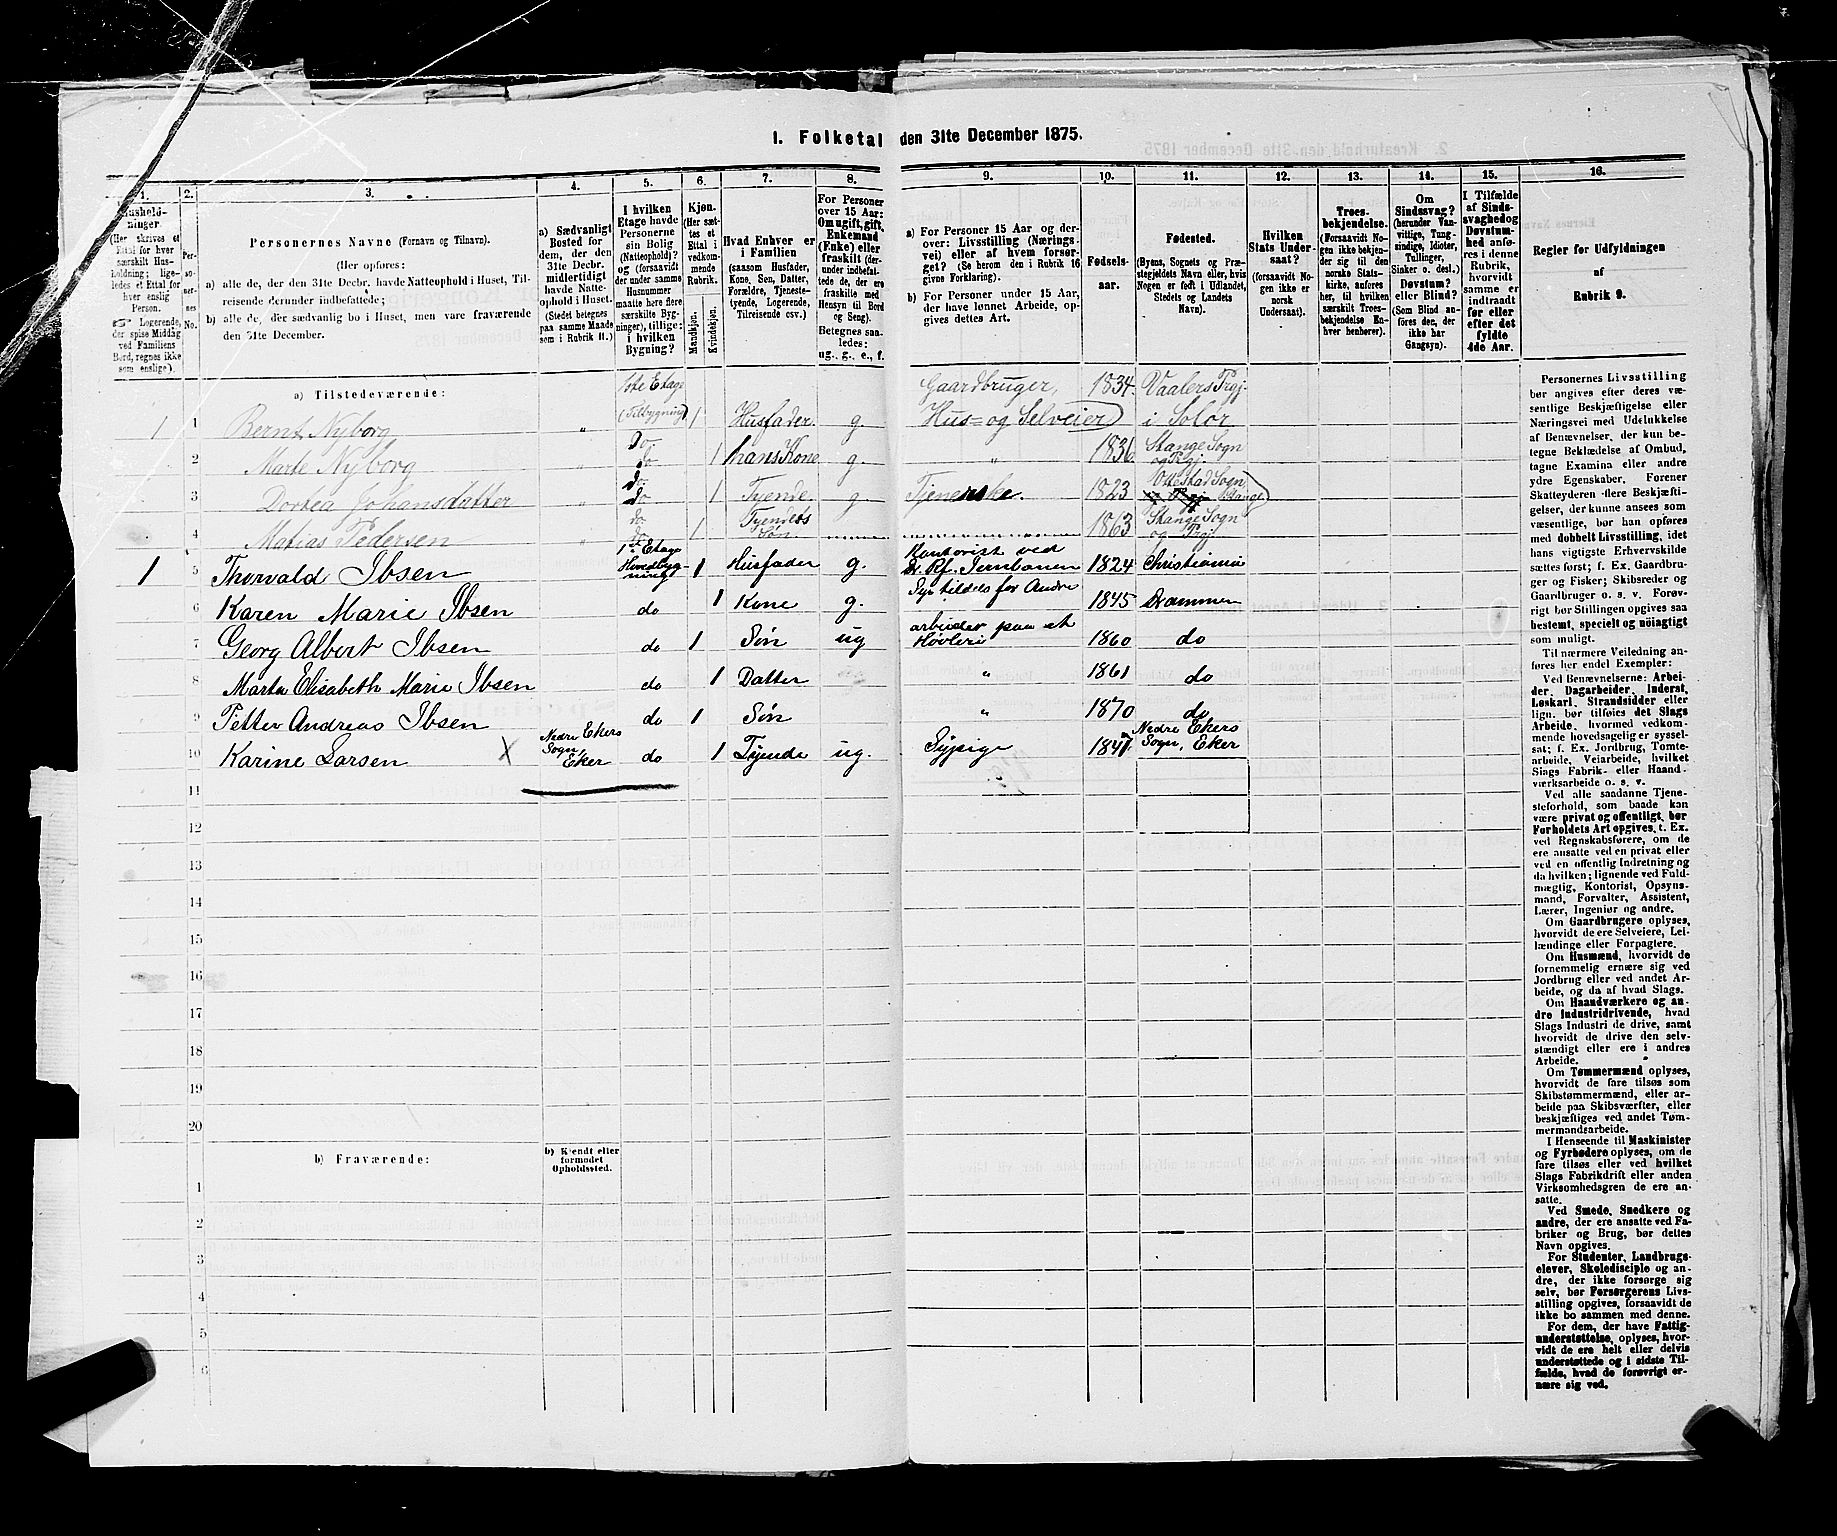 1. Folketal den 31te December 1875.
1.
2.
3.
4.
5.
6.
7.
8.
9.
10.
11.
12.
13.
14.
15.
16.
Hushold-
ninger
(Her skrives et
Ettal for hver
særskilt Hus-
holdning; lige-
ledes et Ettal for
hver enslig
Person.
Logerende,
der spise Middag
ved Familiens
Bord, regnes ikke
som enslige).
Per-
so-
ner-
nes
No.
Personernes Navne (Fornavn og Tilnavn).
(Her opføres:
a) alle de, der den 31te Decbr. havde Natteophold i Huset, Til-
reisende derunder indbefattede;
b) alle de, der sædvanlig bo i Huset, men vare fraværende
den 31te December.
a) Sædvanligt
Bosted for
dem, der den
31te Decbr.
midlertidigt
havde Natte-
ophold i Huset.
(Stedet betegnes
paa samme Maade
som i Rubrik 11.)
I hvilken
Etage havde
Personerne
sin Bolig
(Natteophold)?
og (forsaavidt
der under samme
Husnummer
maatte høre flere
særskilte Byg-
ninger), tillige:
i hvilken
Bygning?
Kjøn.
(Her sæt-
tes et
Ettal i
vedkom-
mende
Rubrik.
Mandkjøn.
Kvindekjøn.
Hvad Enhver er
i Familien
(saasom Husfader,
Kone, Søn, Datter,
Forældre, Tjeneste-
tyende, Logerende,
Tilreisende osv.)
For Personer
over 15 Aar:
Om ugift, gift,
Enkemand
(Enke) eller
fraskilt (der-
under indbefat-
tede de, der ere
fraskilte med
Hensyn til Bord
og Seng).
Betegnes saa-
ledes:
ug., g., e., f.
a) For Personer 15 Aar og der-
over: Livsstilling (Nærings-
vei) eller af hvem forsør-
get? (Se herom den i Rubrik 16
givne Forklaring).
b) For Personer under 15 Aar,
der have lønnet Arbeide, op-
gives dettes Art.
Fødsels-
aar.
Fødested.
(Byens, Sognets og Præ-
stegjeldets Navn eller, hvis
Nogen er født i Udlandet,
Stedets og Landets
Navn).
Hvilken
Stats Under-
saat?
(forsaavidt No-
gen ikke er
norsk
Undersaat).
Troes-
bekjendelse.
(Forsaavidt No-
gen ikke bekjen-
der sig til den
norske Stats-
kirke, anføres
her, til hvilken
særskilt Troes-
bekjendelse En-
hver henhører).
Om
Sindssvag?
(herunder Van-
vittige, Tung-
sindige, Idioter,
Tullinger,
Sinker o. desl.)
Døvstum?
eller Blind?
(Som Blind an-
føres den, der
ikke har
Gangsyn).
I Tilfælde
af Sinds-
svaghed og
Døvstum-
hed anfø-
res i denne
Rubrik,
hvorvidt
samme er
indtraadt
før eller
efter det
fyldte
4de Aar.
Regler for Udfyldningen
af
Rubrik 9.
a) Tilstedeværende:
1 1 Bernt Nyborg " 1ste Etage (Tilbygning) 1 Husfader. g. Gaardbruger, Hus- og Selveier 1834. Vaalers Prgj. i Solør
2 Marte Nyborg " Do do 1 hans Kone g. " 1836. Stange Sogn og Prgj.
3 Dortea Johansdatter " do do 1 Tyende. g. Tjenerske. 1823 Ottestad Sogn Stange
4 Matias Pedersen " do do 1 Tyendets Søn. 1863 Stange Sogn og Prgj.
1 5 Thorvald Ibsen 1ste Etage Hovedbyg-ning 1 Husfader g. Kontorist ved Jernbanen 1824 Christiania
6 Karen Marie Ibsen do 1 Kone g. Syr tildels for Andre 1845 Drammen
7 Georg Albert Ibsen do 1 Søn ug arbeider paa et Høvleri 1860 do
8 Marta Elisabeth Marie Ibsen do 1 Datter " 1861 do
9 Petter Andreas Ibsen do 1 Søn " 1870 do
10 Karine Larsen X Nedre Ekers Sogn Eker do 1 Tyende ug. Sypige 1847 Nedre Ekers Sogn, Eker
11
12
13
14
15
16
17
18
19
20
b) Fraværende:
b) Kjendt eller
formodet
Opholdssted.
1
2
3
4
5
6
Personernes Livsstilling
bør angives efter deres væ-
sentlige Beskjæftigelse eller
Næringsvei med Udelukkelse
af Benævnelser, der kun be-
tegne Beklædelse af Ombud,
tagne Examina eller andre
ydre Egenskaber. Forener
Skatteyderen flere Beskjæfti-
gelser, der kunne ansees som
væsentlige, bør han opføres
med dobbelt Livsstilling, idet
hans vigtigste Erhvervskilde
sættes først; f. Ex. Gaardbru-
ger og Fisker; Skibsreder og
Gaardbruger o. s. v. Forøv-
rigt bør Stillingen opgives saa
bestemt, specielt og nøiagtigt
som muligt.
Til nærmere Veiledning an-
føres her endel Exempler:
Ved Benævnelserne: Arbei-
der, Dagarbeider, Inderst,
Løskarl, Strandsidder eller
lign. bør tilføies det Slags
Arbeide, hvormed vedkom-
mende hovedsagelig er syssel-
sat; f. Ex. Jordbrug, Tomte-
arbeide, Veiarbeide, hvilket
Slags Fabrik- eller Haand-
værksarbeide o. s. v.
Ved alle saadanne Tjene-
steforhold, som baade kan
være privat og offentligt, bør
Forholdets Art opgives, t. Ex.
ved Regnskabsførere, om de
ere ansatte ved en privat eller
ved en offentlig Indretning og
da hvilken; lignende ved Fuld-
mægtig, Kontorist, Opsyns-
mand, Forvalter, Assistent,
Lærer, Ingeniør og andre.
Om Gaardbrugere oplyses,
hvorvidt de ere Selveiere, Lei-
lændinge eller Forpagtere.
Om Husmænd, hvorvidt de
fornemmelig ernære sig ved
Jordbrug eller ved andet Ar-
beide, og da af hvad Slags.
Om Haandværkere og an-
dre Industridrivende, hvad
Slags Industri de drive, samt
hvorvidt de drive den selv-
stændigt eller ere i andres
Arbeide.
Om Tømmermænd oplyses,
hvorvidt de fare tilsøs som
Skibstømmermænd, eller ar-
beide paa Skibsværfter, eller
beskjæftiges ved andet Tøm-
mermandsarbeide.
I Henseende til Maskinister
og Fyrbødere oplyses, om de
fare tilsøs eller ved hvilket
Slags Fabrikdrift eller anden
Virksomhedsgren de ere an-
satte.
Ved Smede, Snedkere og
andre, der ere ansatte ved Fa-
briker og Brug, bør dettes
Navn opgives.
For Studenter, Landbrugs-
elever, Skoledisciple og an-
dre, der ikke forsørge sig
selv, bør Forsørgerens Livs-
stilling opgives, forsaavidt de
ikke bo sammen med denne.
For dem, der have Fattig-
understøttelse, oplyses, hvor-
vidt de ere helt eller delvis
understøttede og i sidste Til-
fælde, hvad de forøvrigt er-
nære sig ved.